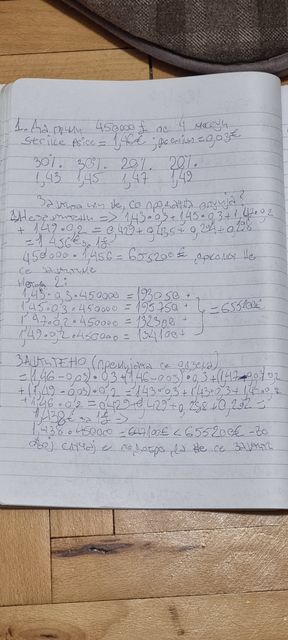 1. Да прими 450000 £ по 4 месеци
strike price = 1,46€, premium = 0,03€
30%. 30%. 20%. 20%.
1,43 1,45 1,47 1,49
Заштити или не, со продажна опција?
Незаштитени => 1,43·0,3+1,45·0,3+1,47·0,2
+ 1,49·0,2 = 0,429+0,435+0,294+0,298
= 1,456€ за 1£
450000·1,456 = 655200€ доколку не
се заштити
2:
1,43·0,3·450000 = 193050 +
1,45·0,3·450000 = 195750 +
1,47·0,2·450000 = 132300 +
1,49·0,2·450000 = 134100
= 655200€
ЗАШТИТЕНО (премијата се одзема)
= (1,46-0,03)·0,3+(1,46-0,03)·0,3+(1,47-0,03)·0,2
+ (1,49-0,03)·0,2 = 1,43·0,3+1,43·0,3+1,44·0,2
+ 1,46·0,2 = 0,429+0,429+0,288+0,292 =
1,438€ за 1£ =>
1,438·450000 = 647100€ < 655200€ - во
овој случај е подобро да не се заштити